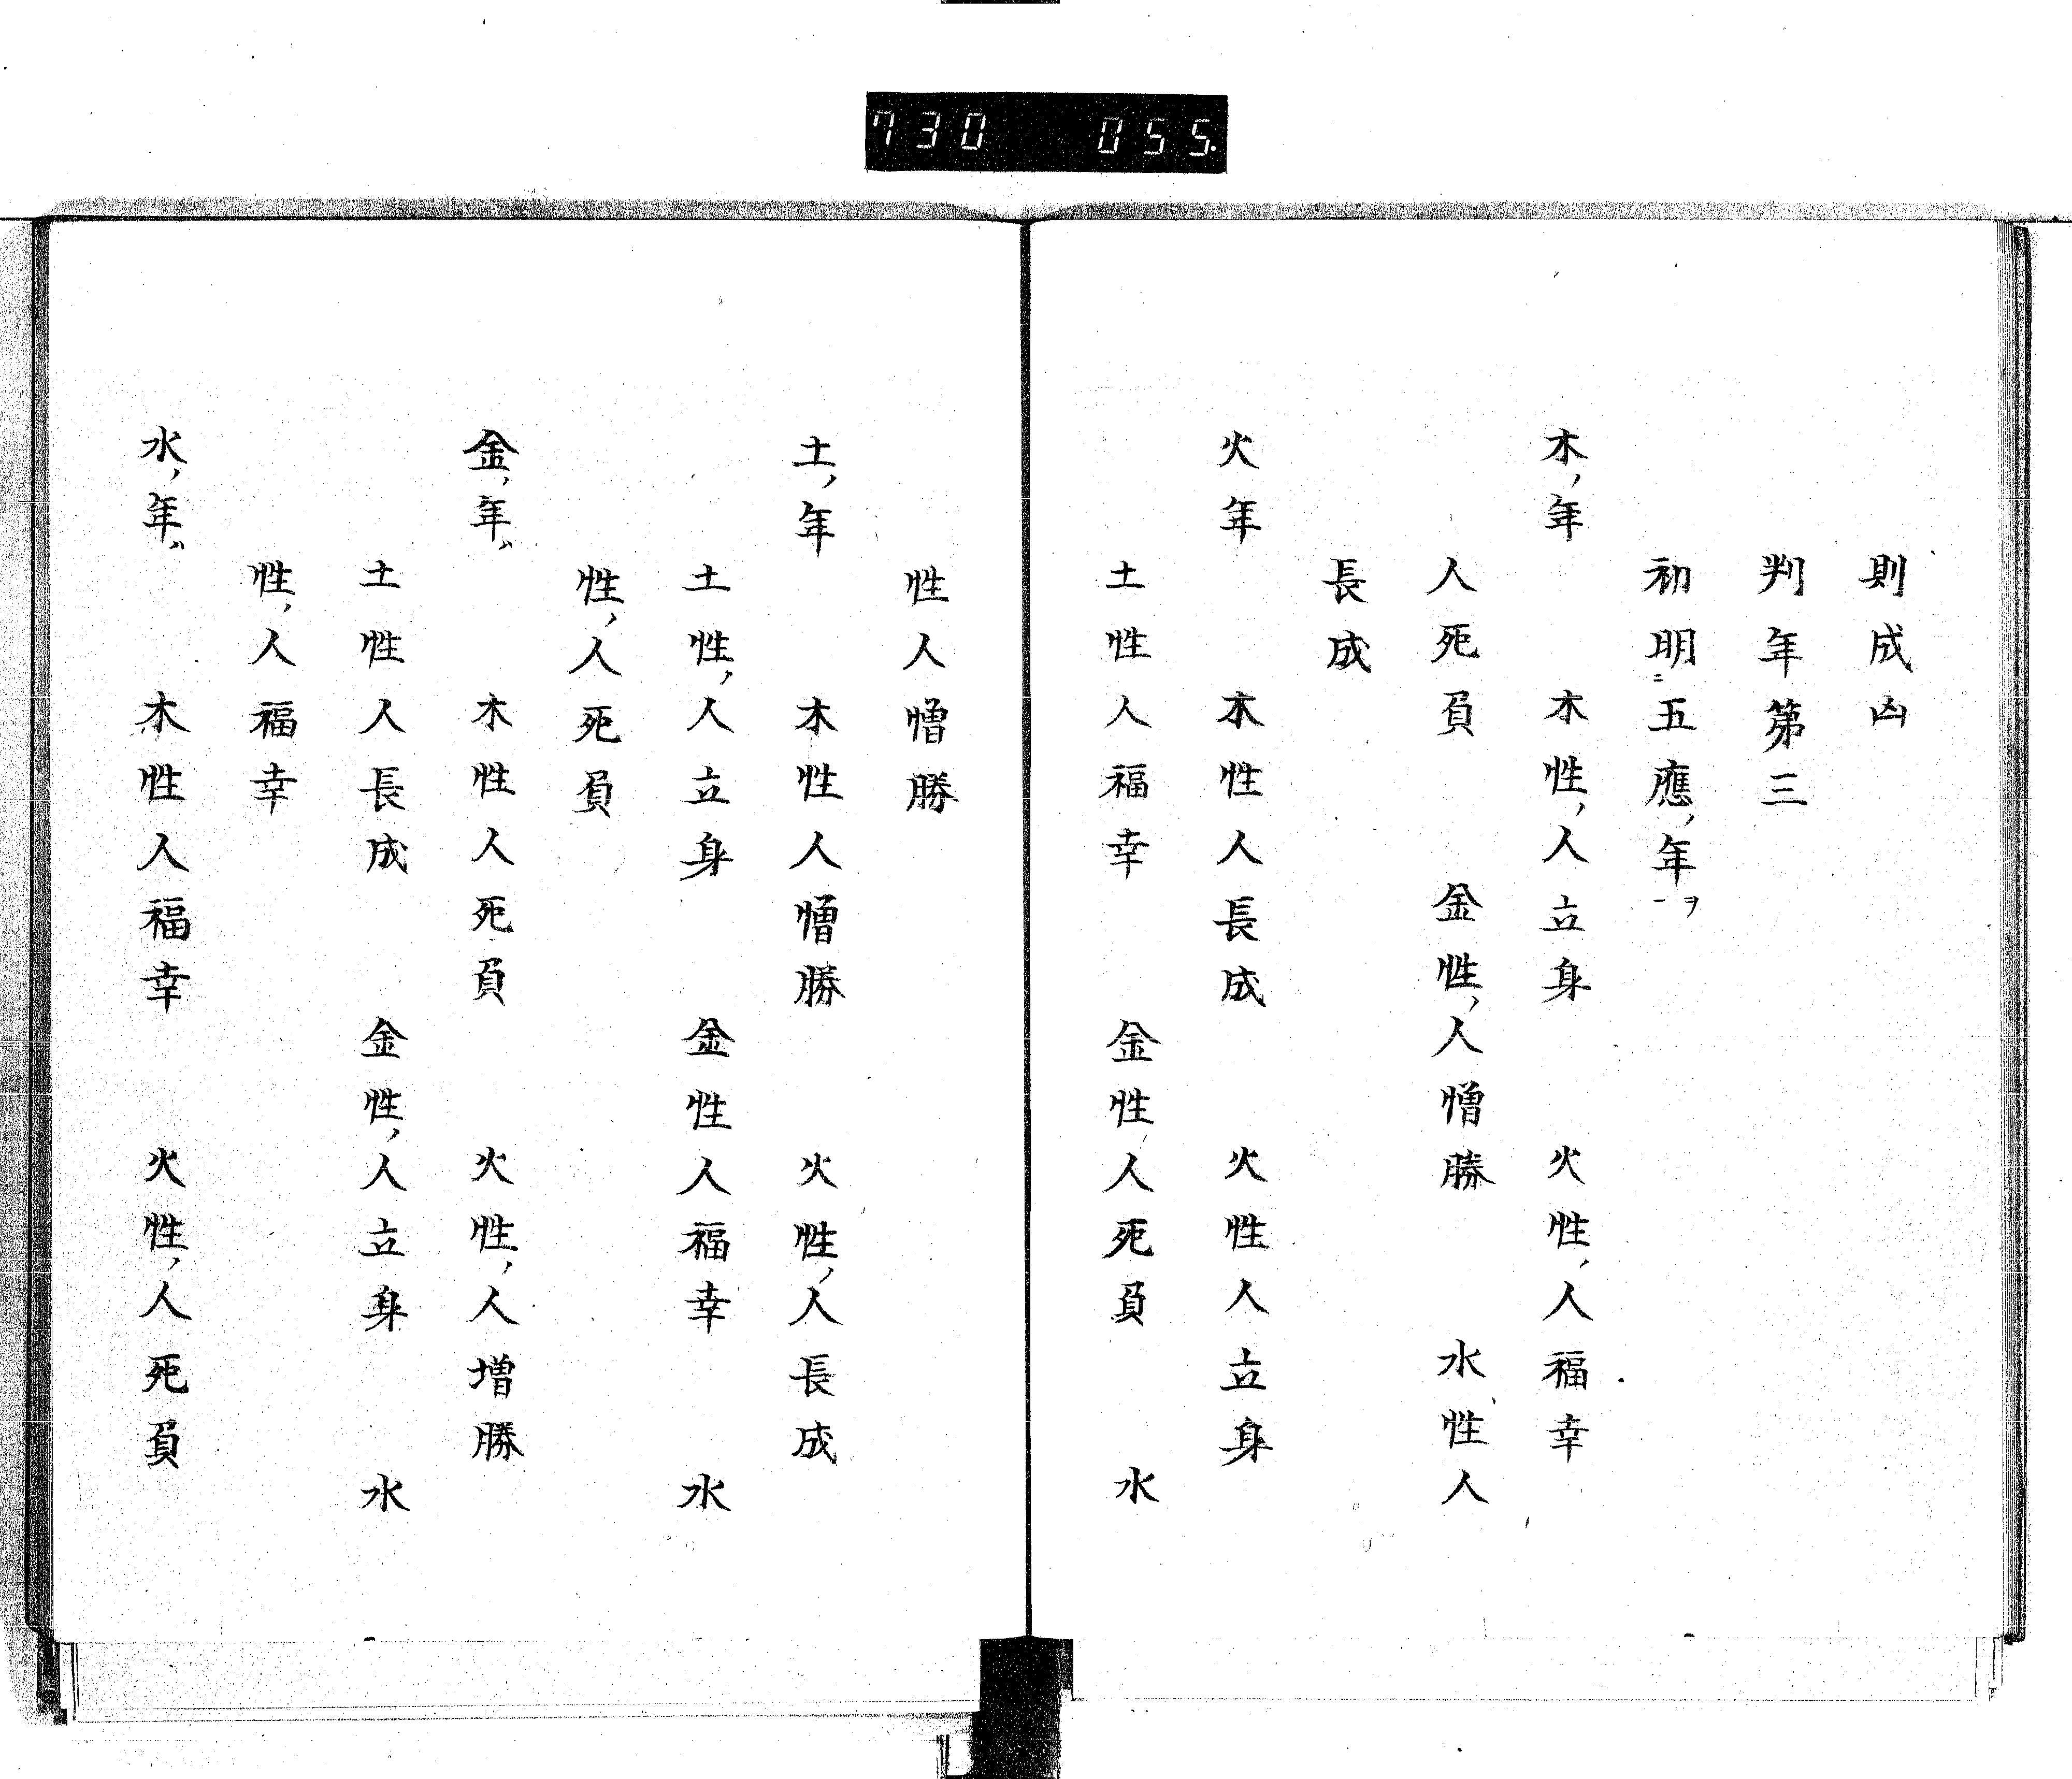 730 055
則成凶
判年第三
初明ニ五應ノ年ヲ一
木ノ年
木性ノ人立身 火性ノ人福幸
人死負 金性ノ人憎勝 水性人
長成
火年
木性人長成 火性人立身
土性人福幸 金性人死負 水
性人憎勝
土ノ年
木性人憎勝 火性ノ人長成
土性ノ人立身 金性人福幸 水
性ノ人死負
金ノ年〻
木性人死負 火性ノ人増勝
土性人長成 金性ノ人立身 水
性ノ人福幸
水ノ年〻
木性人福幸 火性ノ人死負